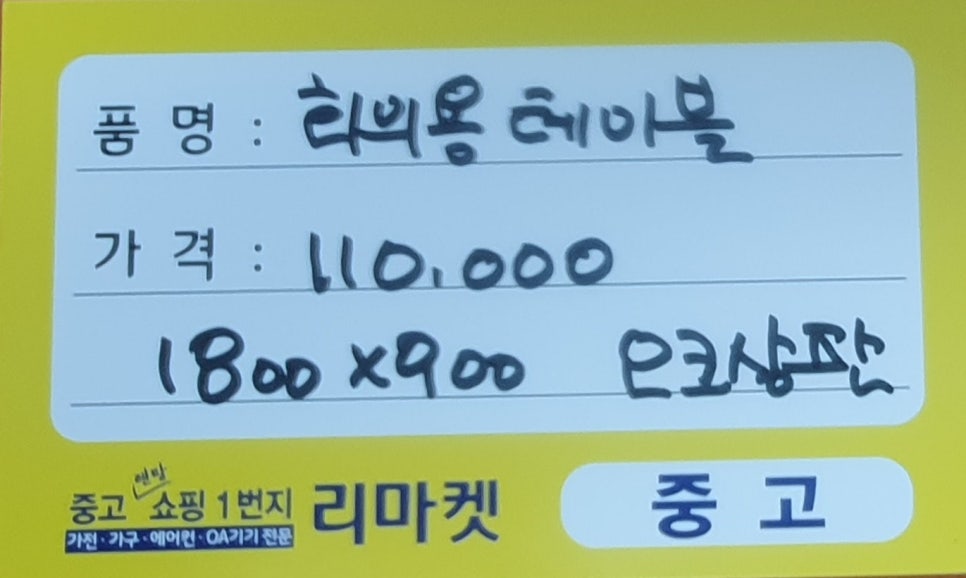 품 명 : 회의용 테이블
가 격 : 110.000
1800x900 오크상판
렌탈
중고 쇼핑 1번지 리마켓 중고
가전·가구·에어컨·OA기기 전문